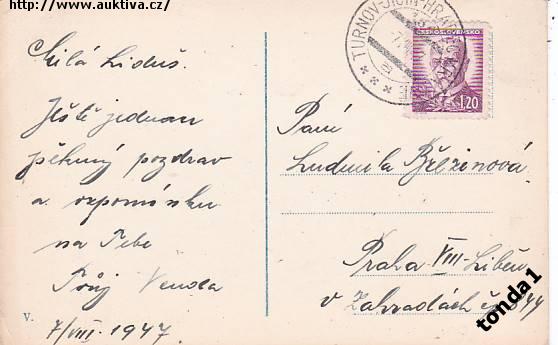 http://www.auktiva.cz/
Milá Liduš.
Ještě jednou
pěkný pozdrav
a vzpomínku
na Tebe
Tvůj Venda
7/VIII. 1947.
V.
TURNOV-JIČÍN-HRADEC KRÁL
ČESKOSLOVENSKO
1.20
Paní
Ludmila Březinová.
Praha VIII-Libeň
v Zahradách č.
tonda1